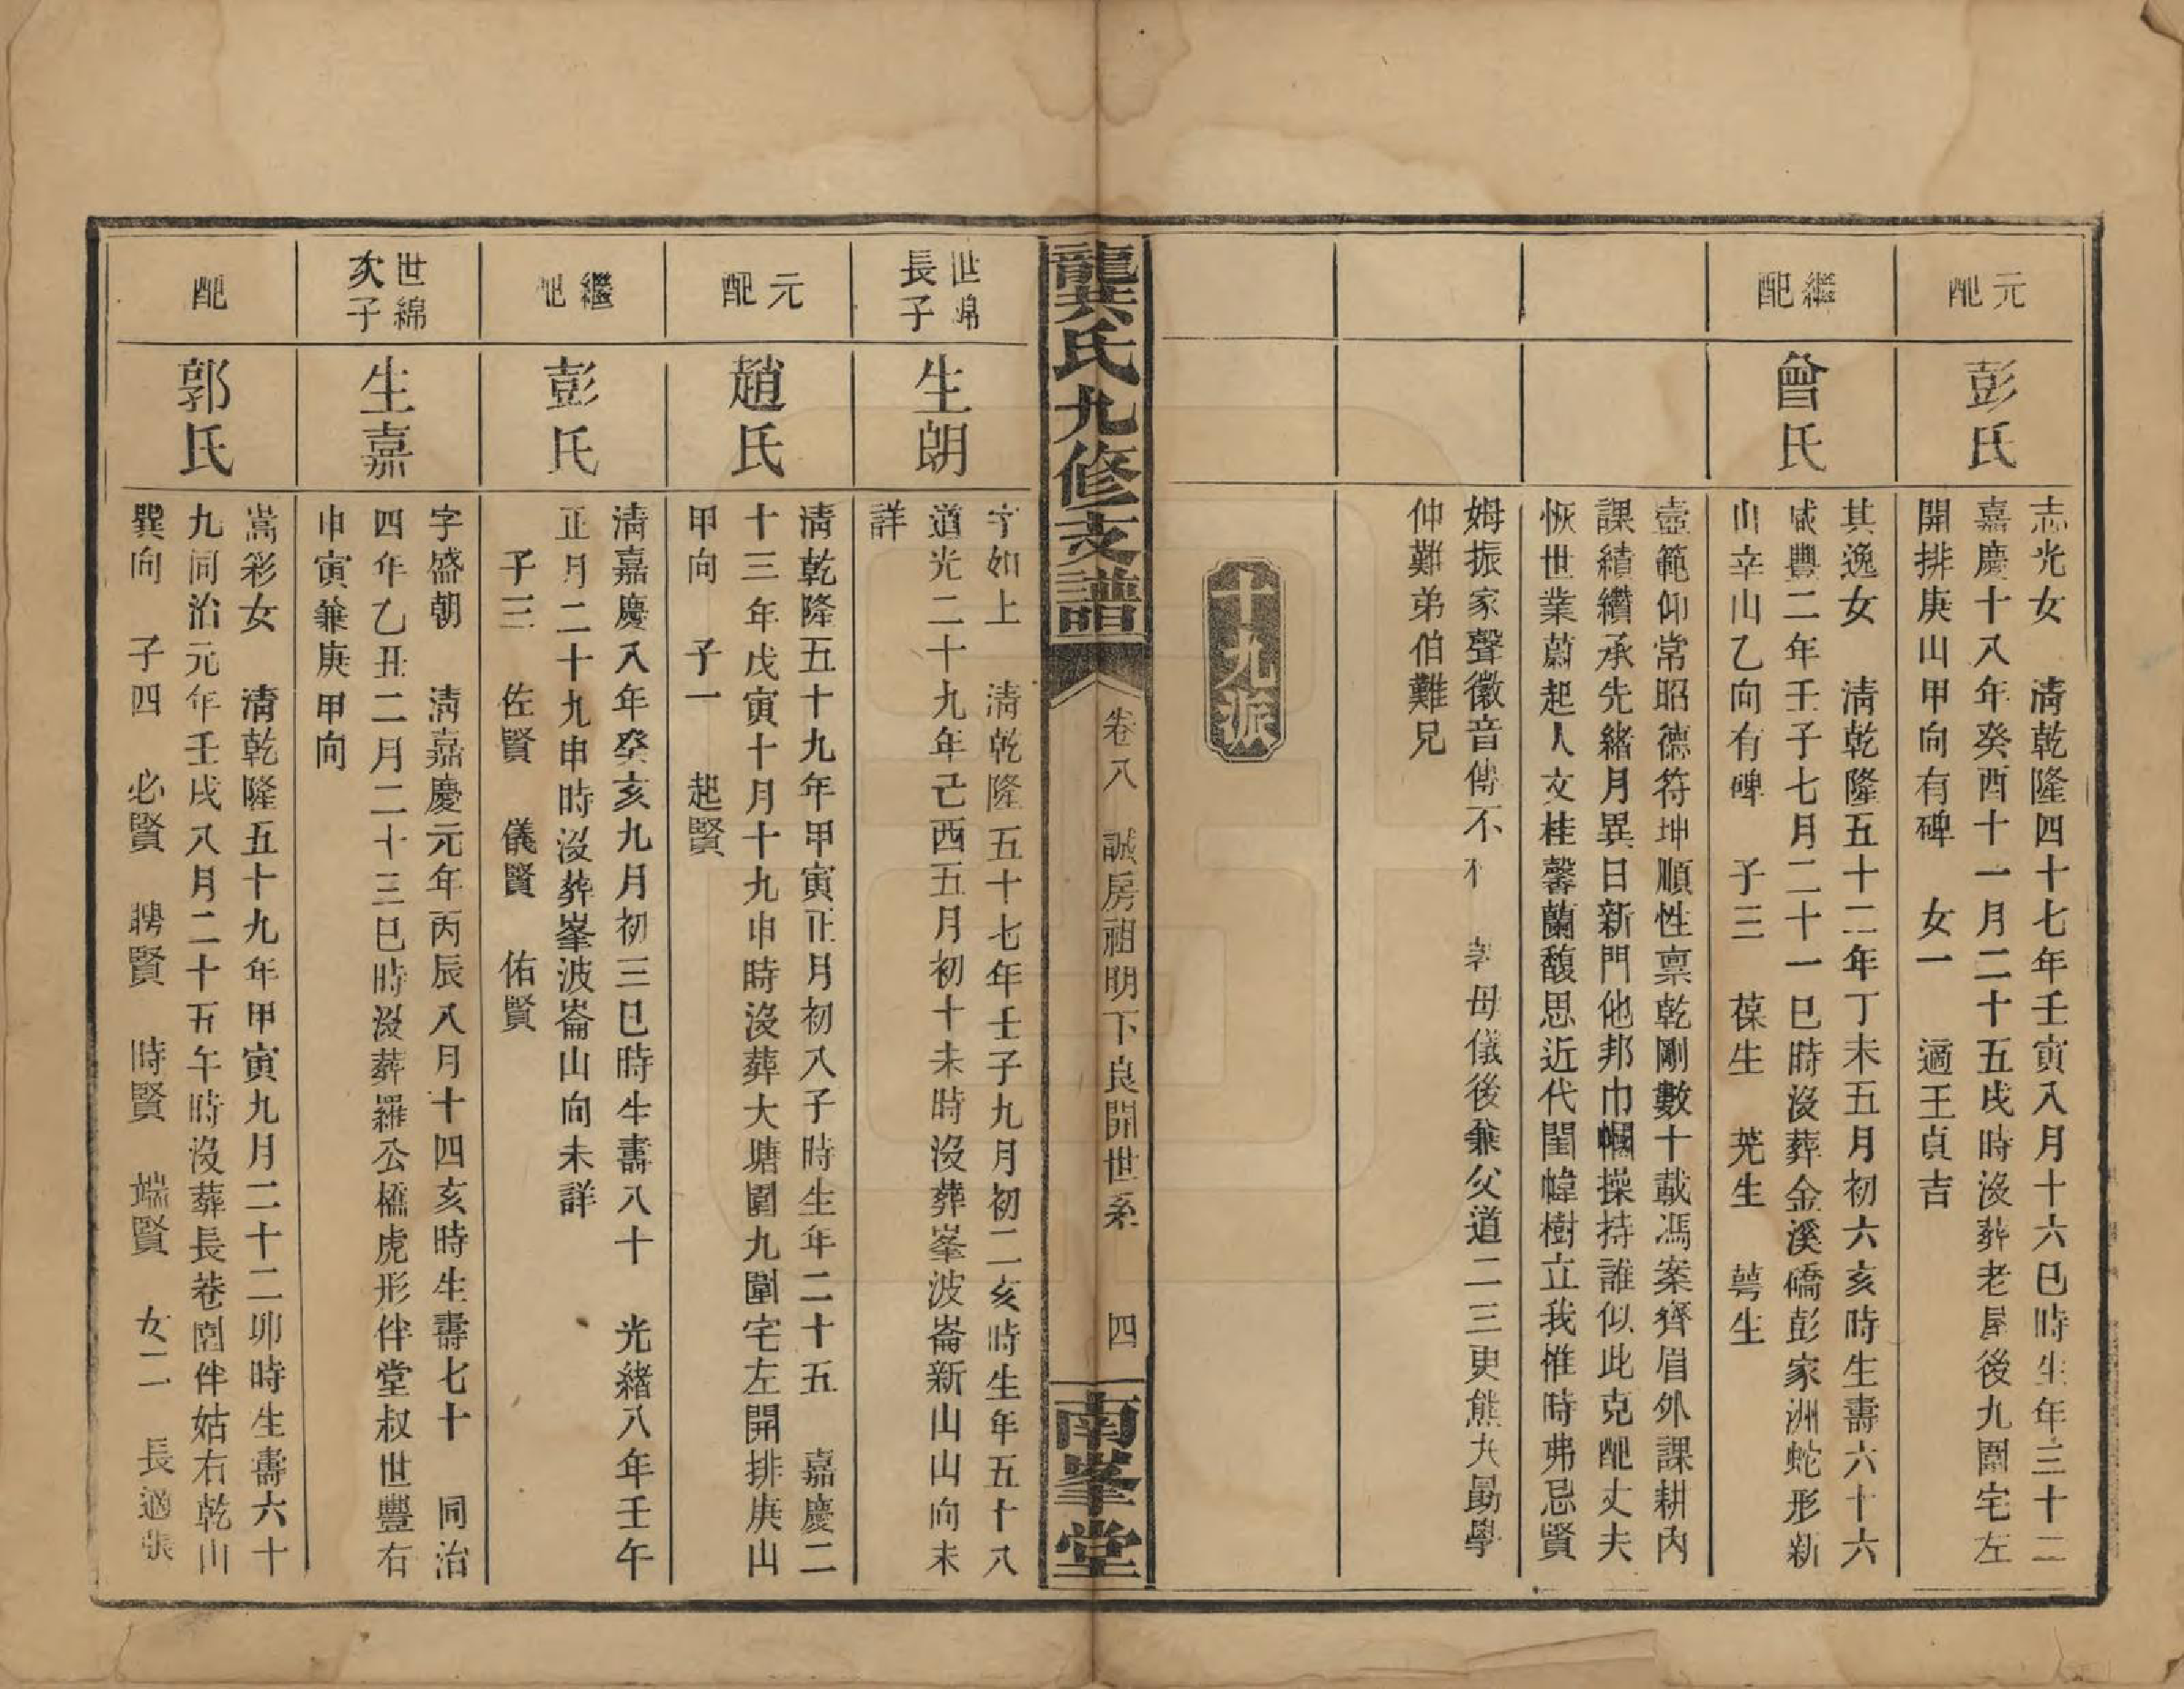 元配
彭氏
志光女　清乾隆四十七年壬寅八月十六巳時生年三十二
嘉慶十八年癸酉十一月二十五戌時沒葬老屋後九圍宅左
開排庚山甲向有碑　女一　適王貞吉
繼配
曾氏
其逸女　清乾隆五十二年丁未五月初六亥時生壽六十六
咸豐二年壬子七月二十一巳時沒葬金溪礄彭家洲蛇形新
山辛山乙向有碑　子三　葆生　芫生　萼生
壼範仰常昭德符坤順性稟乾剛數十載馮案齊眉外課耕內
課績纘承先緒月異日新門他邦巾幗操持誰似此克配丈夫
恢世業蔚起人文桂馨蘭馥思近代閨幃樹立我惟時弗忌賢
姆振家聲徽音傳不　母儀後兼父道二三更熊丸勗學
仲難弟伯難兄
十九派
龍共氏九修支譜
卷八　誠房祖明下良開世系　四
南峯堂
世綿長子
生朗
字如上　清乾隆五十七年壬子九月初二亥時生年五十八
道光二十九年己酉五月初十未時沒葬峯波崙新山山向未
詳
元配
趙氏
清乾隆五十九年甲寅正月初八子時生年二十五　嘉慶二
十三年戊寅十月十九申時沒葬大塘圍九圍宅左開排庚山
甲向　子一　起賢
繼配
彭氏
清嘉慶八年癸亥九月初三巳時生壽八十　光緒八年壬午
正月二十九申時沒葬峯波崙山向未詳
子三　佐賢　儀賢　佑賢
世綿次子
生嘉
字盛朝　清嘉慶元年丙辰八月十四亥時生壽七十　同治
四年乙丑二月二十三巳時沒葬羅公橋虎形伴堂叔世豐右
申寅兼庚甲向
配
郭氏
嵩彩女　清乾隆五十九年甲寅九月二十二卯時生壽六十
九同治元年壬戌八月二十五午時沒葬長巷園伴姑右乾山
巽向　子四　必賢　聘賢　時賢　端賢　女二　長適張